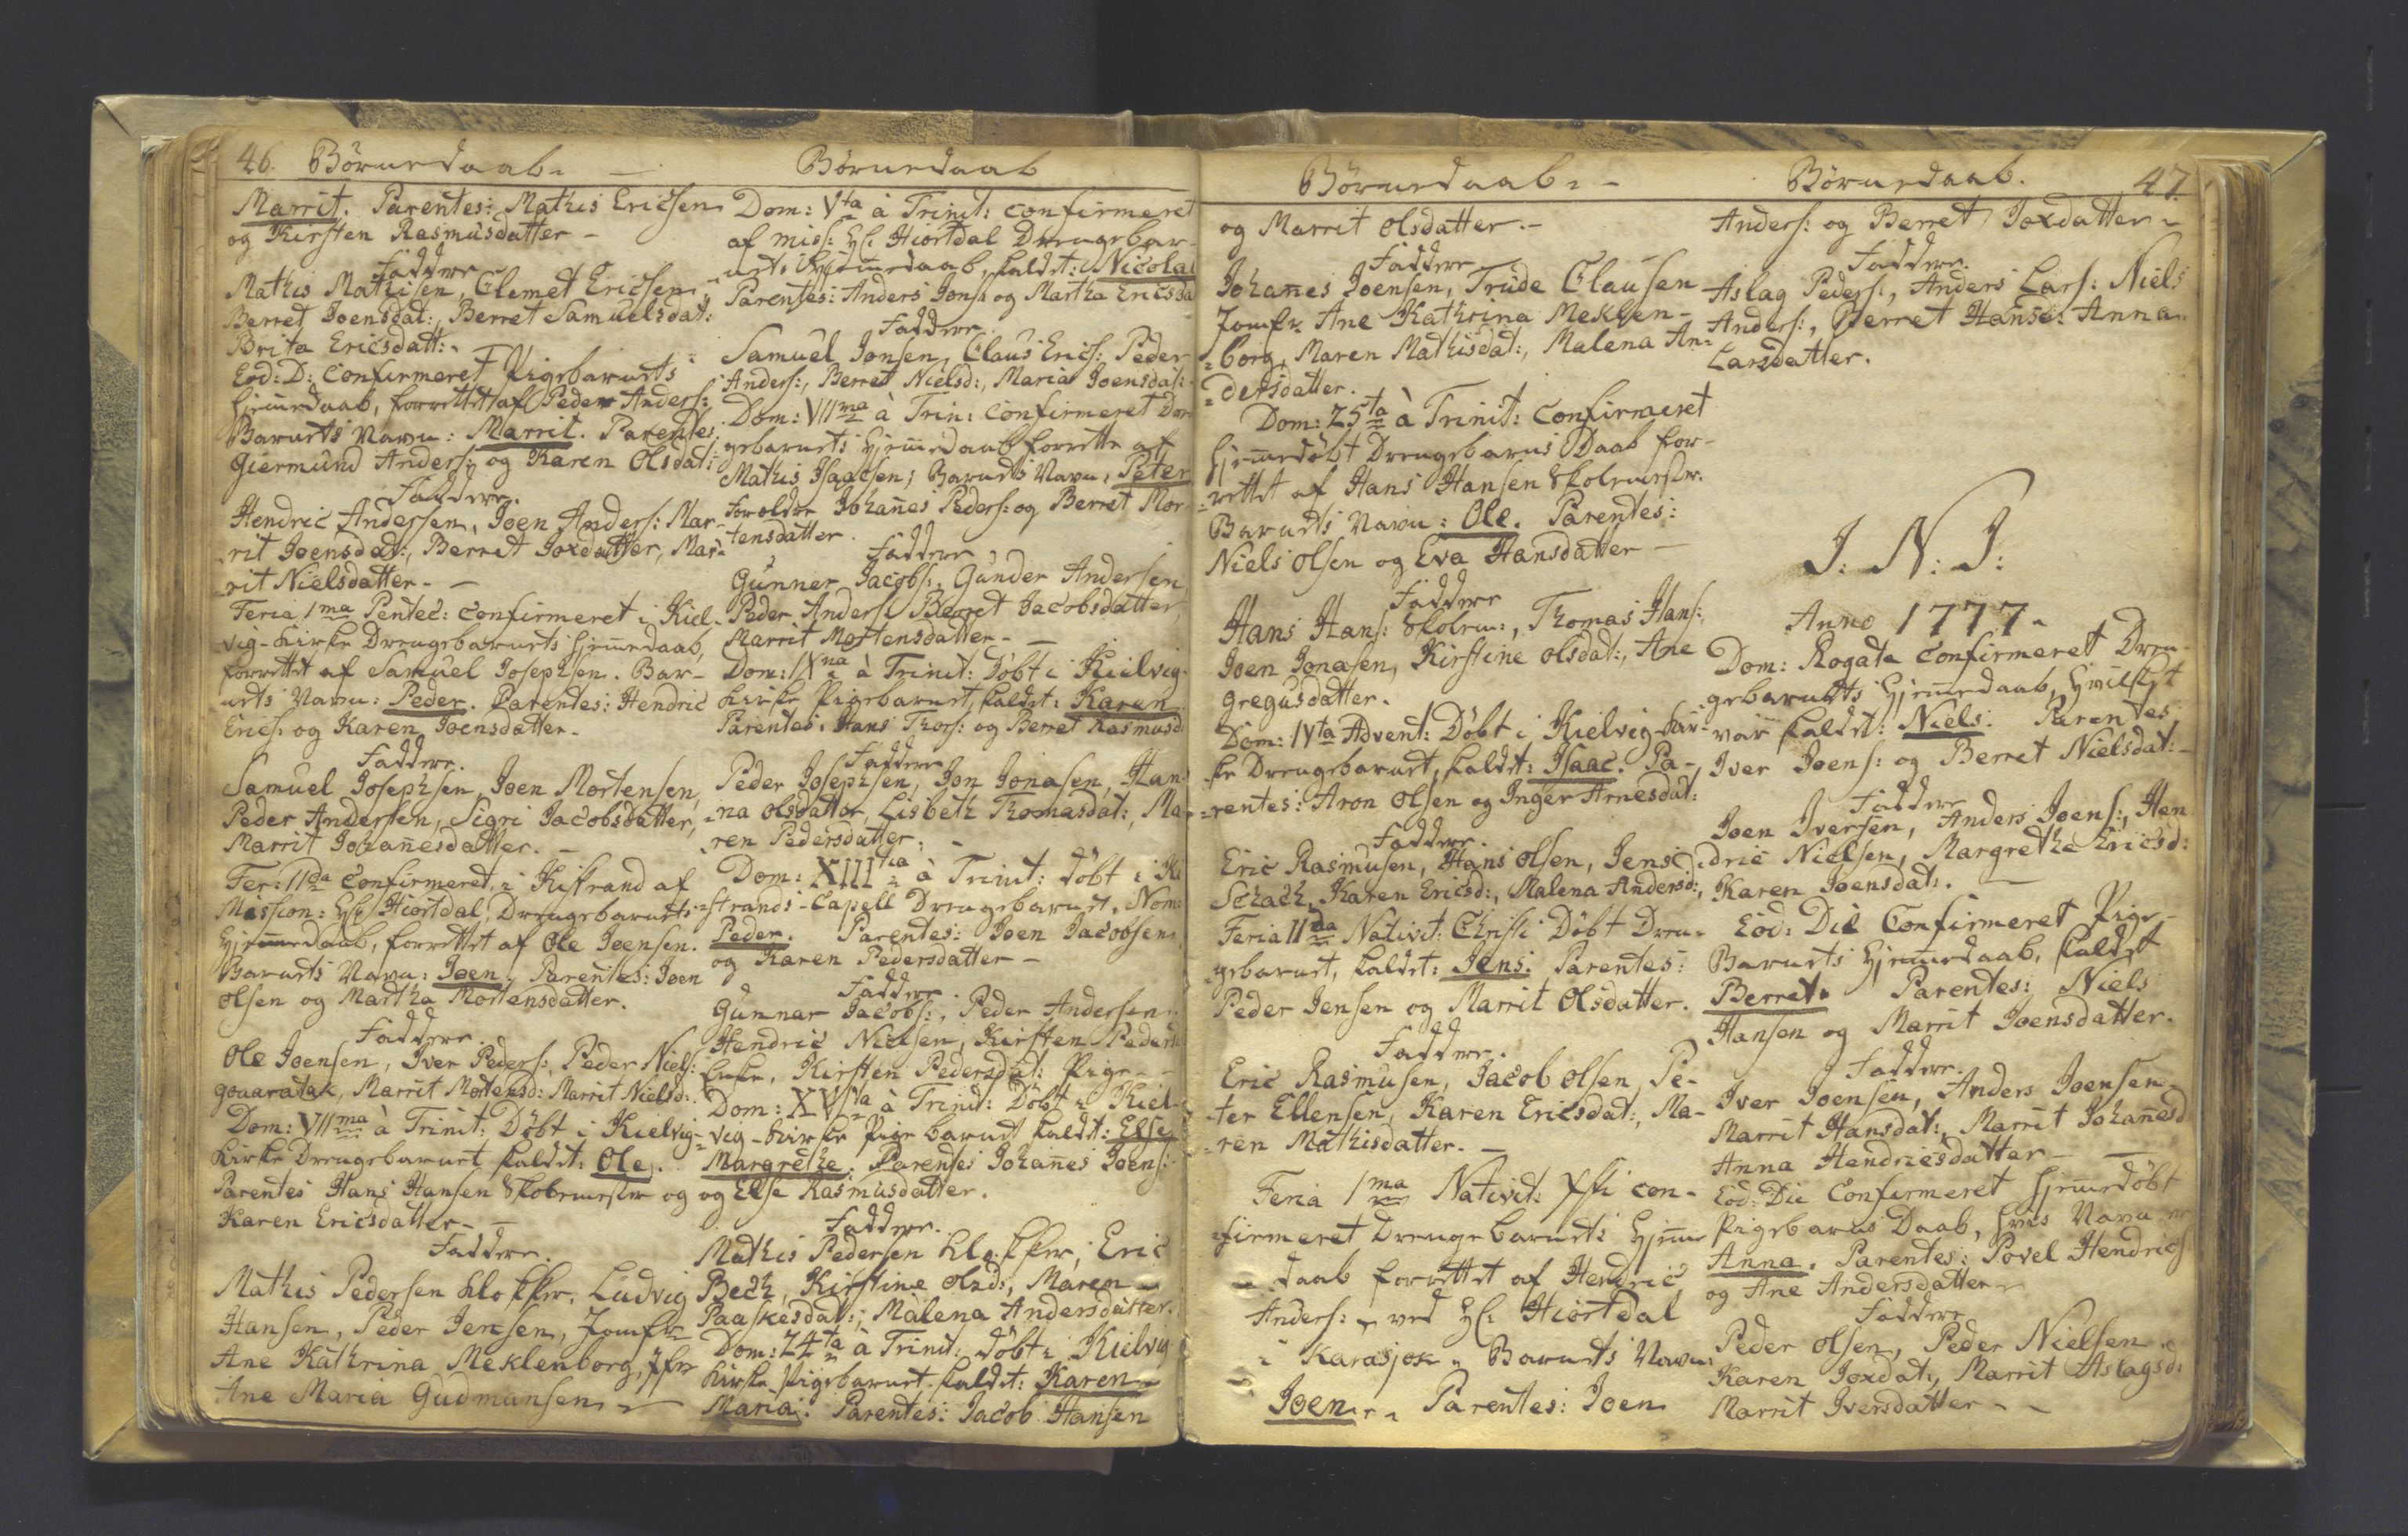 46. Børnedaab. - Børnedaab
Marrit. Parentes: Mathis Ericsen
og Kirsten Rasmusdatter -
Faddere
Mathis Mathisen, Clemet Ericsen
Berret Joensdat:, Berret Samuelsdat:
Brita Ericsdatt:
Eod: D: Confirmeret Pigebarnets
Hjemedaab, forrettet af Peder Anders:
Barnets Navn: Marrit. Parentes
Giermund Anders: og Karen Olsdat:
Faddere.
Hendric Andersen, Joen Anders: Mar-
rit Joensdat:, Berret Joxdatter, Mar-
rit Nielsdatter - -
Feria 1ma Pentec: confirmeret i Kiel-
vig-Kirke Drengebarnets Hjemedaab,
forrettet af Samuel Josephsen. Bar-
nets Navn: Peder. Parentes: Hendric
Erics: og Karen Joensdatter -
Faddere.
Samuel Josephsen, Joen Mortensen,
Peder Andersen, Sigri Jacobsdatter,
Marrit Johanesdatter. -
Fer: IIda Confirmeret, i Kistrand af
Mission: Hr: Hiortdal, Drengebarnets
Hjemedaab, forrettet af Ole Joensen.
Barnets Navn: Joen, Parentes: Joen
Olsen og Martha Mortensdatter.
Faddere.
Ole Joensen, Iver Peders:, Peder Niels:
gouaratak, Marrit Mortensd: Marrit Nielsd:.
Dom: VIIma à Trinit: Døbt i Kielvig-
Kirke Drengebarnet kaldet: Ole.
Parentes Hans Hansen Skolemester og
Karen Ericsdatter - -
Faddere.
Mathis Pedersen Klokker, Ludvig
Hansen, Peder Jensen, Jomfr
Ane Kathrina Meklenborg, Jfr
Ane Maria Gudmansen
Dom: Vta à Trinit: confirmeret
af Miss: Hr: Hiortdal Drengebar-
nets Hjemedaab, kaldet: Nicolai
Parentes: Anders Jons: og Martha Ericsda
Faddere.
Samuel Jonsen, Claus Erics: Peder
Anders:, Berret Nielsd:, Maria Joensdat:
Dom: VIIma à Trin: Confirmeret Dren
gebarnets Hjemedaab forrettet af
Mathis Isaacsen; Barnets Navn: Peter
Forældre Johanes Peders: og Berret Mor-
tensdatter.
Faddere
Gunner Jacobs:, Gunder Andersen
Peder Anders: Berret Jacobsdatter,
Marrit Mortensdatter - -
Dom: IXna à Trinit: Døbt i Kielvig-
Kirke Pigebarnet, kaldet: Karen
Parentes: Hans Thors: og Berret Rasmusd
Faddere
Peder Josephsen, Jon Jonasen, Han
na Olsdatter, Lisbeth Thomasdat:, Ma-
ren Pedersdatter. -
Dom: XIIItia à Trinit: døbt i Ki
strands-Capell Drengebarnet, Nom:
Peder. Parentes: Joen Jacobsen
og Karen Pedersdatter -
Faddere.
Gunnar Jacobs:, Peder Andersen
Hendric Nielsen, Kirsten Peders
Enke, Kirsten Pedersdat: Pige - -
Dom: XVIta à Trinit: Døbt i Kiel-
vig-Kirke Pige barnet kaldet: Else
Margrethe. Parentes Johanes Joens:
og Else Rasmusdatter.
Faddere.
Mathis Pedersen Klokker, Eric
Bech, Kirstine Olsd:, Maren
Paaskesdat:, Malena Andersdatter.
Dom: 24ta à Trinit: døbt i Kielvig
Kirke Pigebarnet kaldet: Karen
Maria. Parentes: Jacob Hansen
Børnedaab. - Børnedaab. 47.
og Marrit Olsdatter. -
Faddere
Johanes Joensen, Trude Clausen
Jomfr Ane Kathrina Meklen-
borg, Maren Mathisdat:, Malena An-
dersdatter.
Dom: 25ta à Trinit: Confirmeret
Hjemedøbt Drengebarns Daab for-
rettet af Hans Hansen Skolemester.
Barnets Navn: Ole. Parentes:
Niels Olsen og Eva Hansdatter -
Faddere
Hans Hans: Skolem:, Thomas Hans:
Joen Jonasen, Kirstine Olsdat:, Ane
Gregusdatter.
Dom: IVta Advent: Døbt i Kielvig Kir-
ke Drengebarnet, kaldet: Isaac. Pa-
rentes: Aron Olsen og Inger Arnesdat:
Faddere.
Eric Rasmusen, Hans Olsen, Jens
Schach, Karen Ericsd:, Malena Andersd:,
Feria IIda Nativit: Christi Døbt Dren-
gebarnet, kaldet: Jens. Parentes:
Peder Jensen og Marrit Olsdatter.
Faddere.
Eric Rasmusen, Jacob Olsen, Pe-
ter Ellensen, Karen Ericsdat:, Ma-
ren Mathisdatter. -
Feria 1ma Nativit: Xsti con-
firmeret Drengebarnets Hjeme
daab forrettet af Hendric
Anders: ved Hr: Hiortdal
i Karasjok. Barnets Navn
Joen. Parentes: Joen
Anders: og Berret Joxdatter
Faddere.
Aslag Peders:, Anders Lars: Niels
Anders:, Berret Hansd: Anna
Larsdatter.
I: N: I:
Anno 1777
Dom: Rogate Confirmeret Dren-
gebarnets Hjemedaab, hvilket
var kaldet: Niels. Parentes
Iver Joens: og Berret Nielsdat:
Faddere
Joen Iversen, Anders Joens:, Hen
dric Nielsen, Margrethe Ericsd:
Karen Joensdat:.
Eod: Die Confirmeret Pige-
Barnets Hjemedaab, kaldet
Berret. Parentes: Niels
Hansen og Marrit Joensdatter.
Faddere.
Iver Joensen, Anders Joensen
Marrit Hansdat:, Marrit Johanesd
Anna Hendricsdatter - -
Eod: Die Confirmeret Hjemedøbt
Pigebarns Daab, hvis Navn er
Anna. Parentes: Povel Hendrics
og Ane Andersdatter
Faddere
Peder Olsen, Peder Nielsen
Karen Joxdat:, Marrit Aslagsd:
Marrit Iversdatter - -